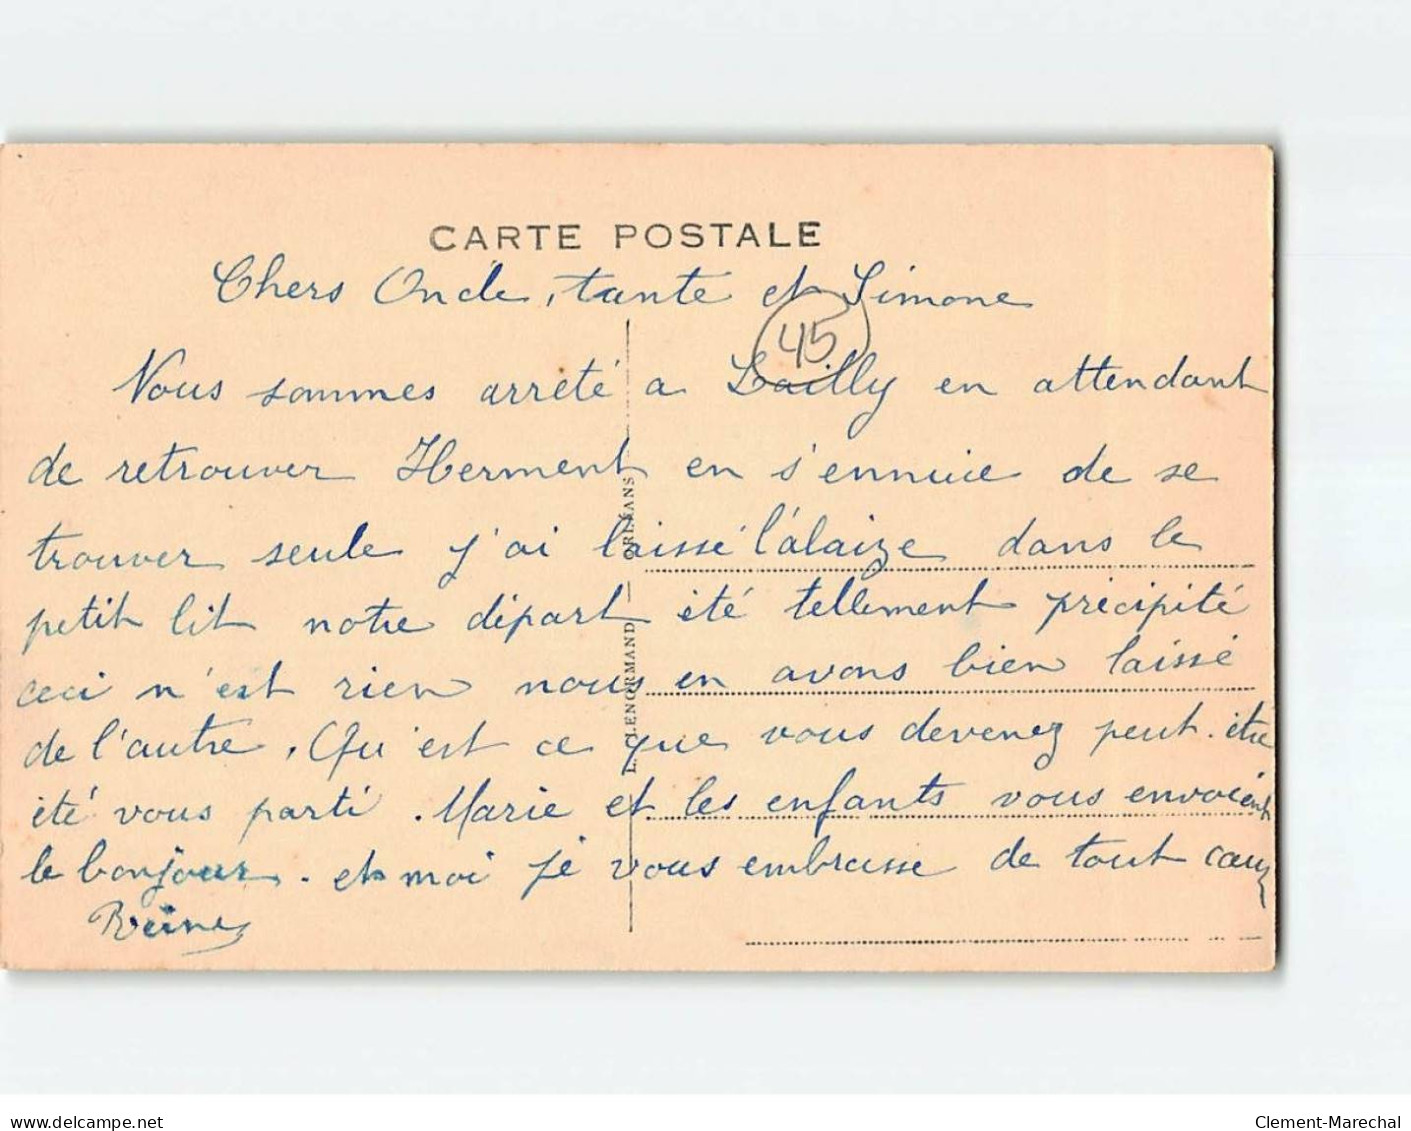 CARTE POSTALE
Chers Oncle, tante et Simone
45
Nous sommes arrêté a Lailly en attendant
de retrouver Herment en s'ennuie de se
trouver seule j'ai laissé l'alaize dans le
petit lit notre départ été tellement précipité
ceci n'est rien nous en avons bien laissé
de l'autre. Qu'est ce que vous devenez peut-être
été vous parti. Marie et les enfants vous envoient
le bonjour. et moi je vous embrasse de tout cœur
Reine
L. LENORMAND — ORLÉANS
delcampe.net
Clement-Marechal